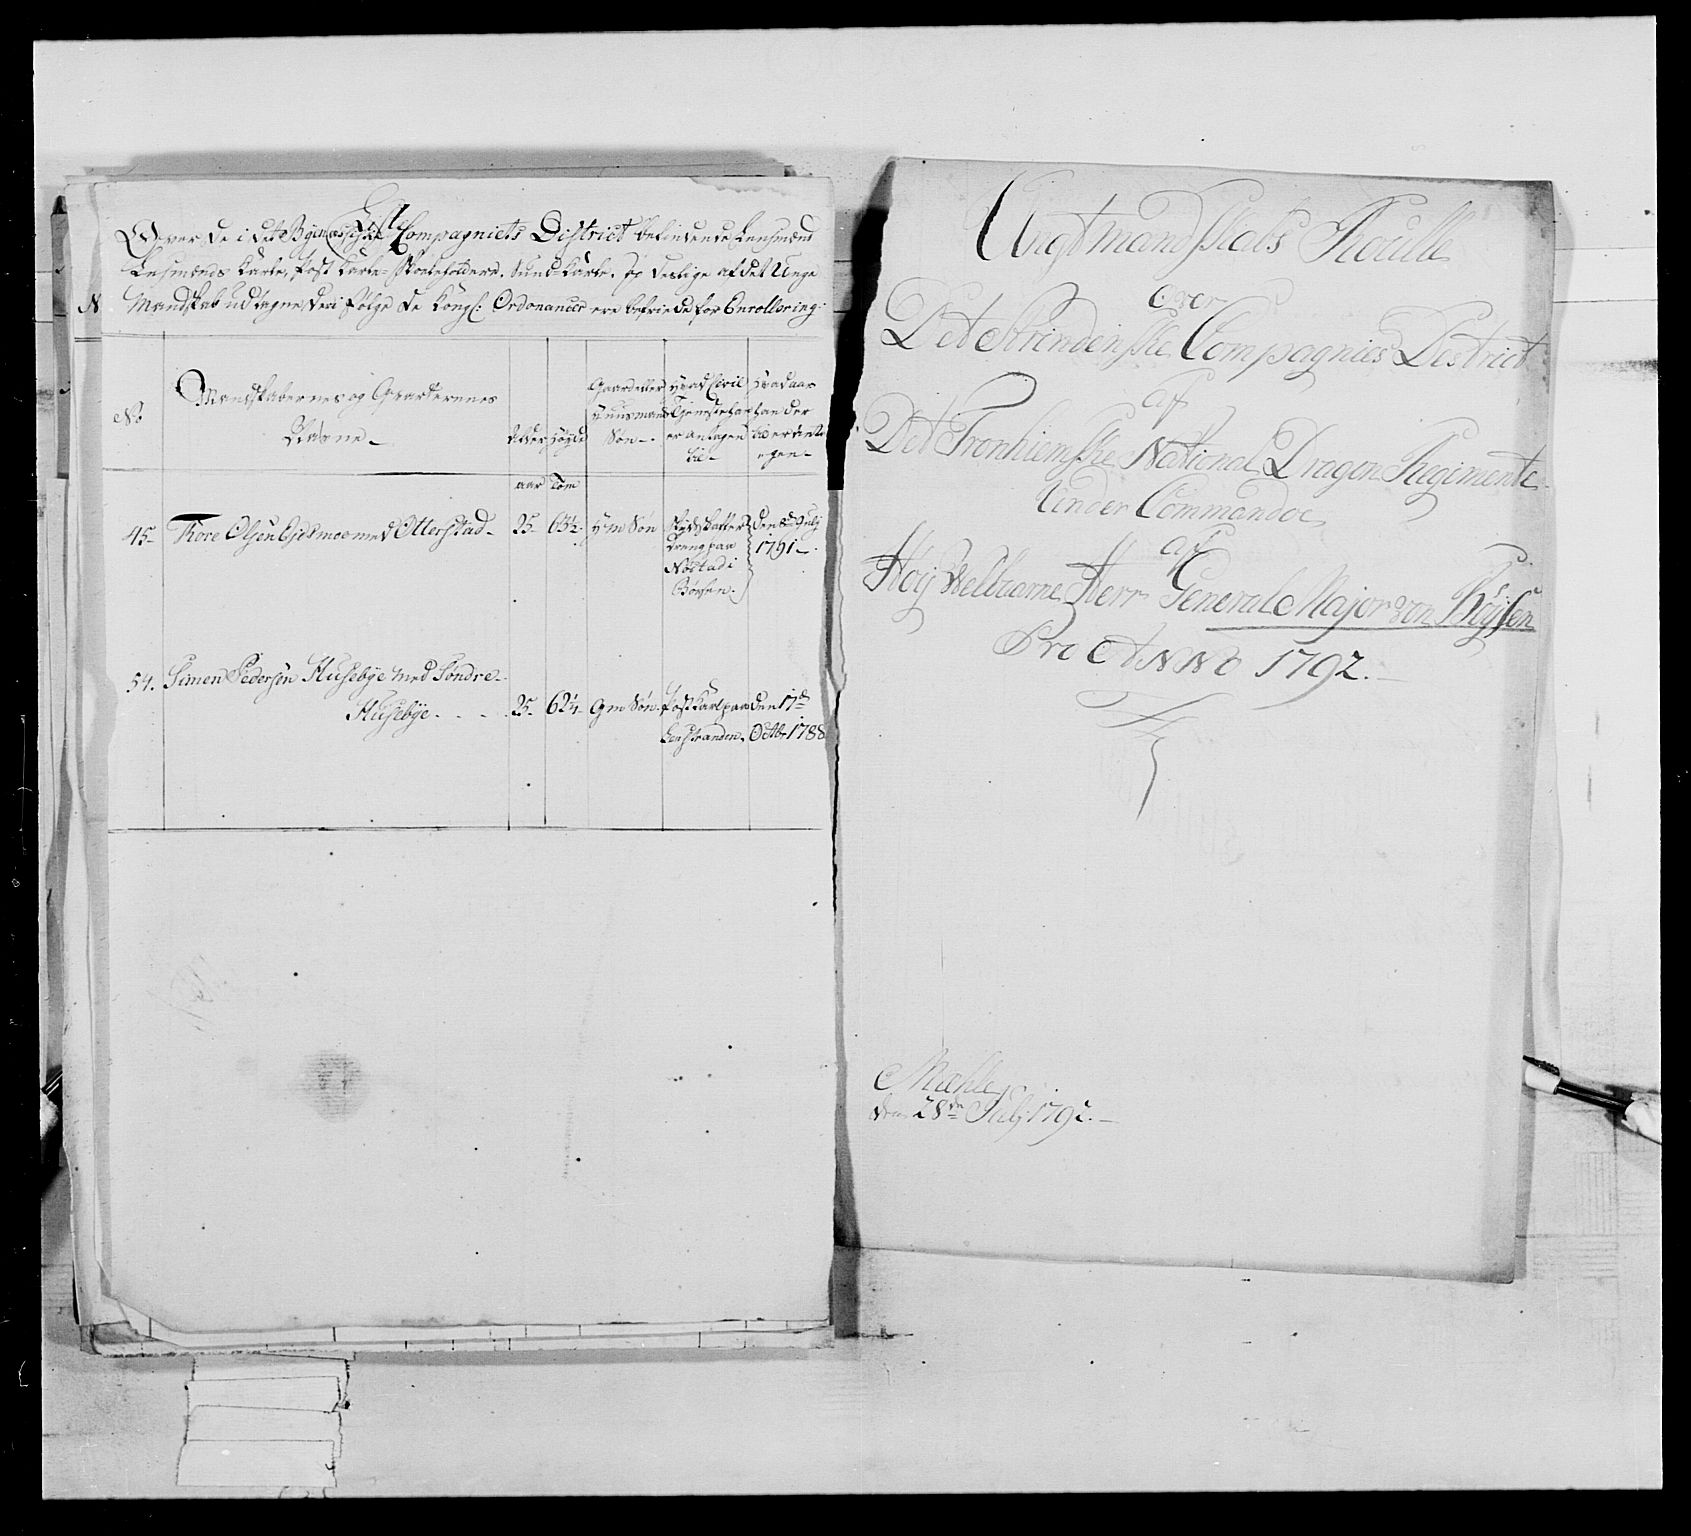 Liste
Over de i det Byenæsiske Compagniets District befindende Lensmænd
Lensmænds Karle, Post Karle, Skoeleholdere, Sund-Karle, og deslige af det Unge
N Mandskab udtagne, der i Følge de Kongl: Ordonancer ere befriede for Enrollering:
No
Mandskabernes og Gaardernes Navne
Alder
Høyde
Gaard eller Huusmands Søn
Hvad Civil Tjeneste han er antagen til
Hvad aar han der til er antagen
aar Tom
45 Tore Olsen med Otterstad 25 63½ H m Søn Skydsskaffer Dreng paa i Børsen. den 8de Julij 1791
54. Simen Pedersøn Husebye med Søndre
Husebye 25 62¼ G m Søn Postkarl paa den 17de
Octbr 1788
Ungtmandskabs Roulle
over
Det Strindenske Compagnies District
af
Det Tronhiemske National Dragon Regimente
Under Commando
af
Høy Welbaarne Herr General Major von Høysen
Pro ANNO 1792.
Mæhle
den 28de Julj 1792.